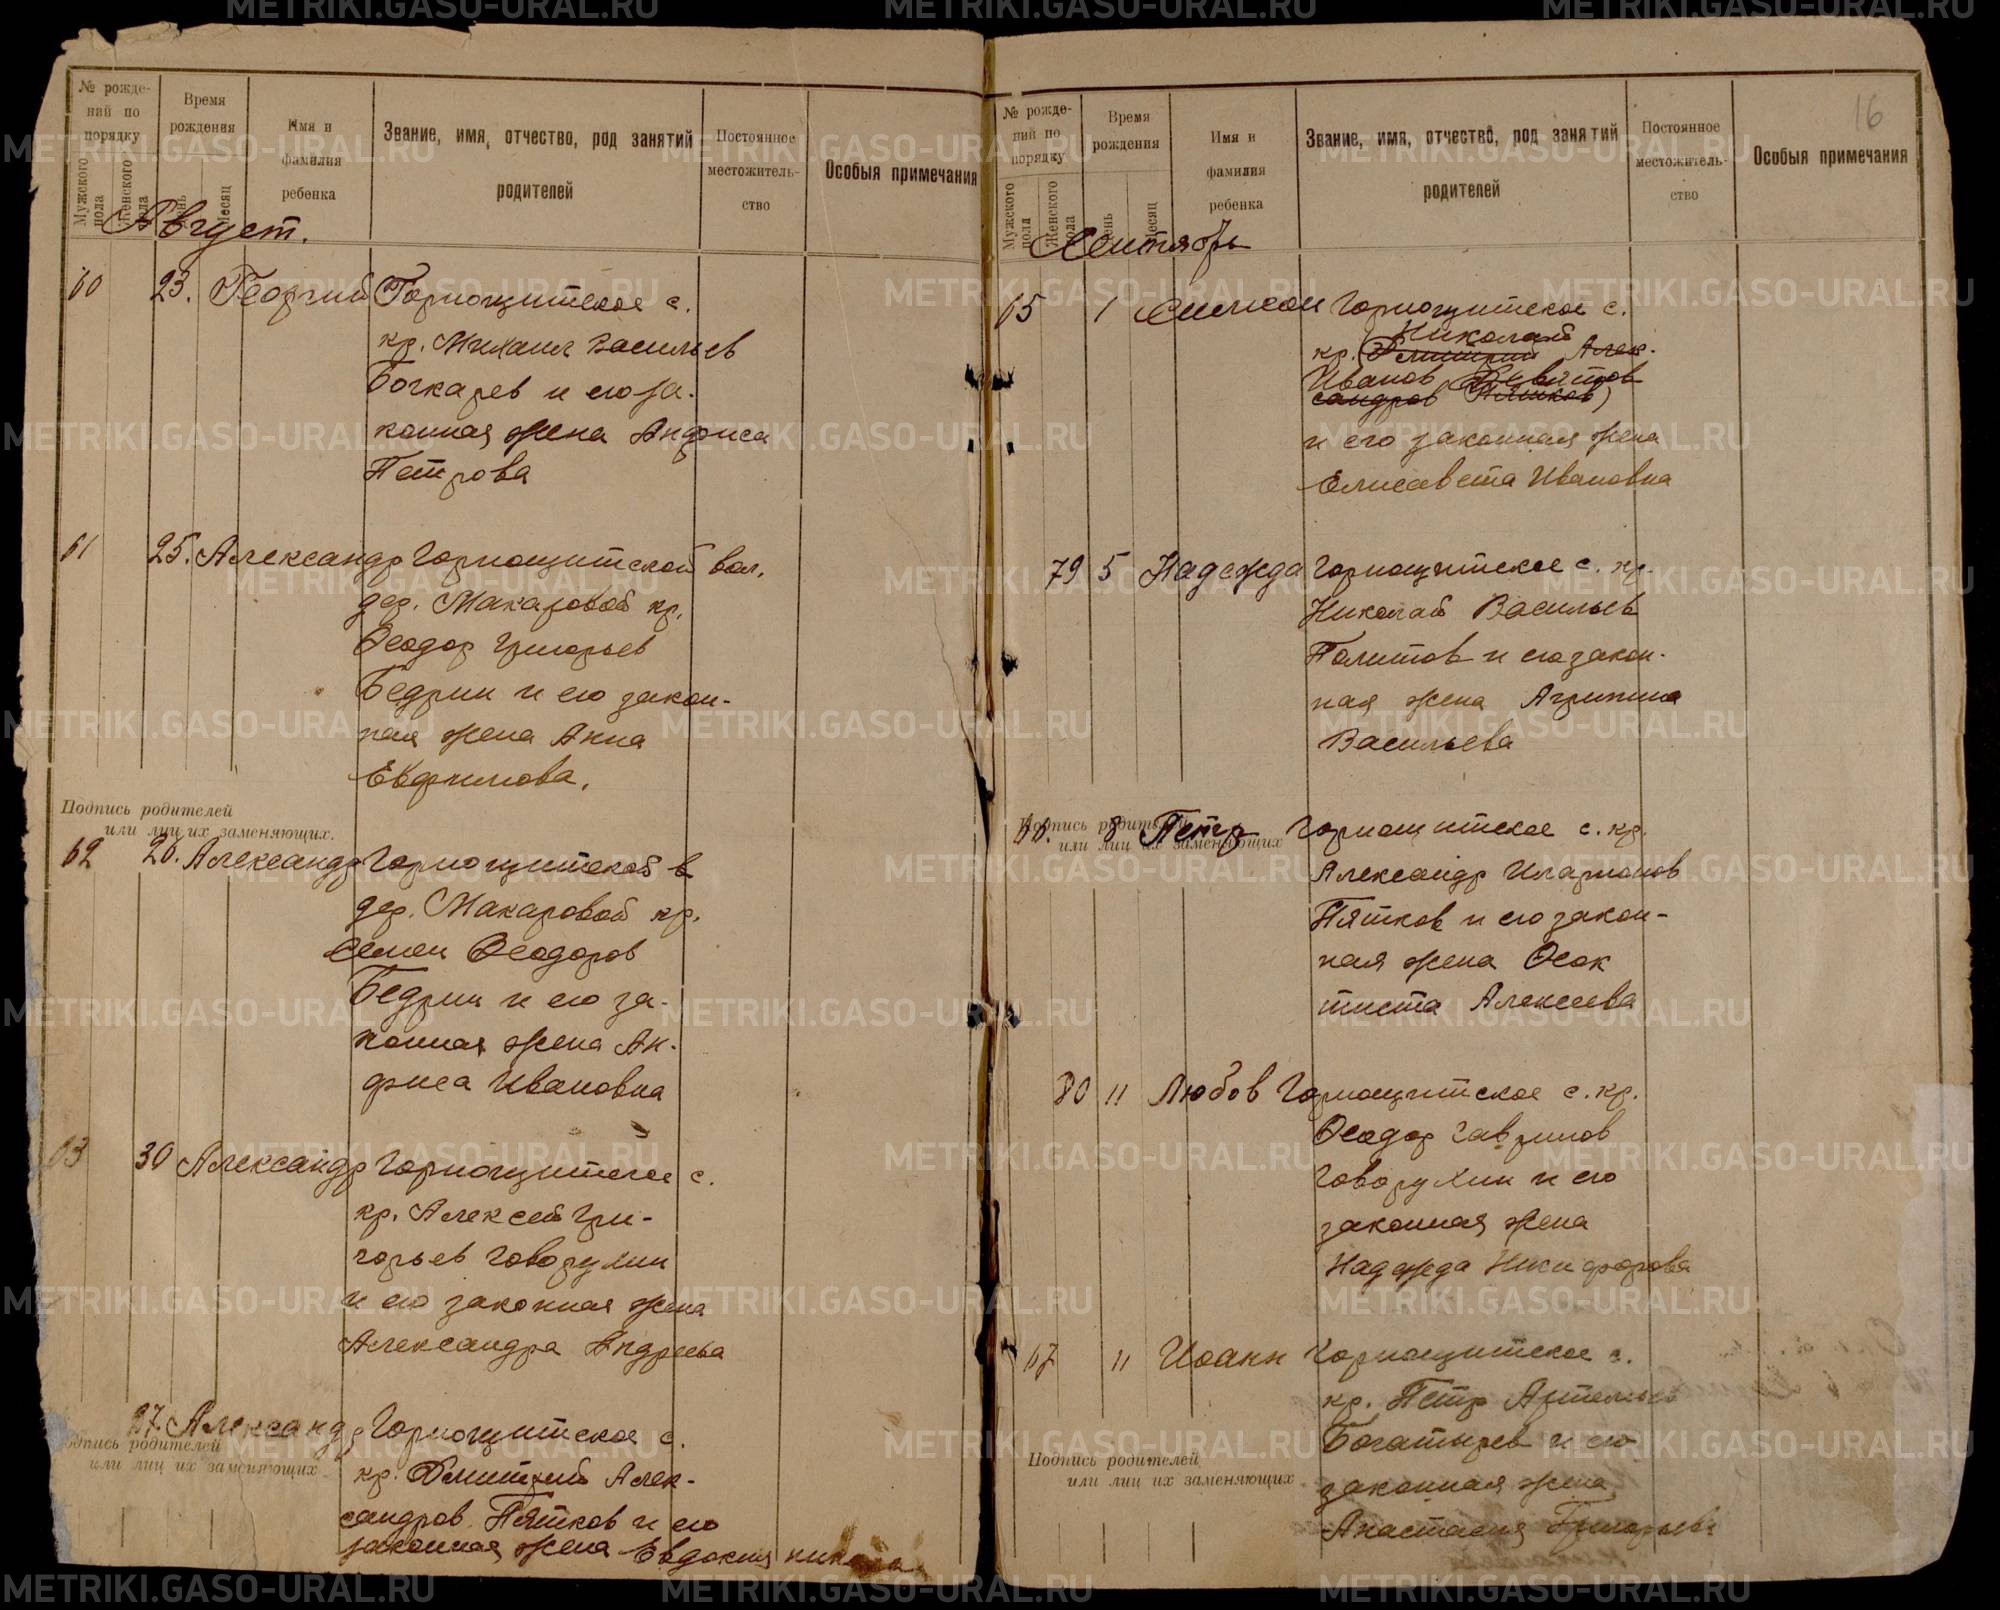 № рожде-
ний по
порядку
Мужского
пола
Женского
пола
Время
рождения
День
Месяц
Имя и
фамилия
ребенка
Звание, имя, отчество, род занятий
родителей
Постоянное
местожитель-
ство
Особыя примечания
Август.
60 23. Георгий Горнощитское с.
кр. Михаил Васильев
Бочкарев и его за-
конная жена Анфиса
Петрова
61 25. Александр Горнощитской вол.
дер. Макаровой кр.
Феодор Григорьев
Бедрин и его закон-
ная жена Анна
Евфимова.
Подпись родителей
или лиц их заменяющих.
62 26. Александр Горнощитской в
дер. Макаровой кр.
Семен Феодоров
Бедрин и его за-
конная жена Ан-
фиса Ивановна
63 30 Александр Горнощитское с.
кр. Алексей Гри-
горьев Говорухин
и его законная жена
Александра Андреева
27. Александр Горнощитское с.
Подпись родителей
или лиц их заменяющих
кр. Димитрий Алек-
сандров Пятков и его
законная жена Евдокия
16
№ рожде-
ний по
порядку
Мужского
пола
Женского
пола
Время
рождения
День
Месяц
Имя и
фамилия
ребенка
Звание, имя, отчество, род занятий
родителей
Постоянное
местожитель-
ство
Особыя примечания
Сентябрь
65 1 Симеон Горнощитское с.
Николай
кр. (Димитрий Алек-
Иванов
сандров Пятков)
и его законная жена
Елисавета Ивановна
79 5 Надежда Горнощитское с. кр.
Николай Васильев
Политов и его закон-
ная жена Агрипина
Васильева
66. 8 Петр Горнощитское с. кр.
Подпись родителей
или лиц их заменяющих
Александр Иларионов
Пятков и его закон-
ная жена Феок
тиста Алексеева
80 11 Любов Горнощитское с. кр.
Феодор Гаврилов
Говорухин и его
законная жена
Надежда Никифорова
67 11 Иоанн Горнощитское с.
кр. Петр Артемьев
Богатырев и его
Подпись родителей
или лиц их заменяющих
законная жена
Анастасия Григорьев
METRIKI.GASO-URAL.RU